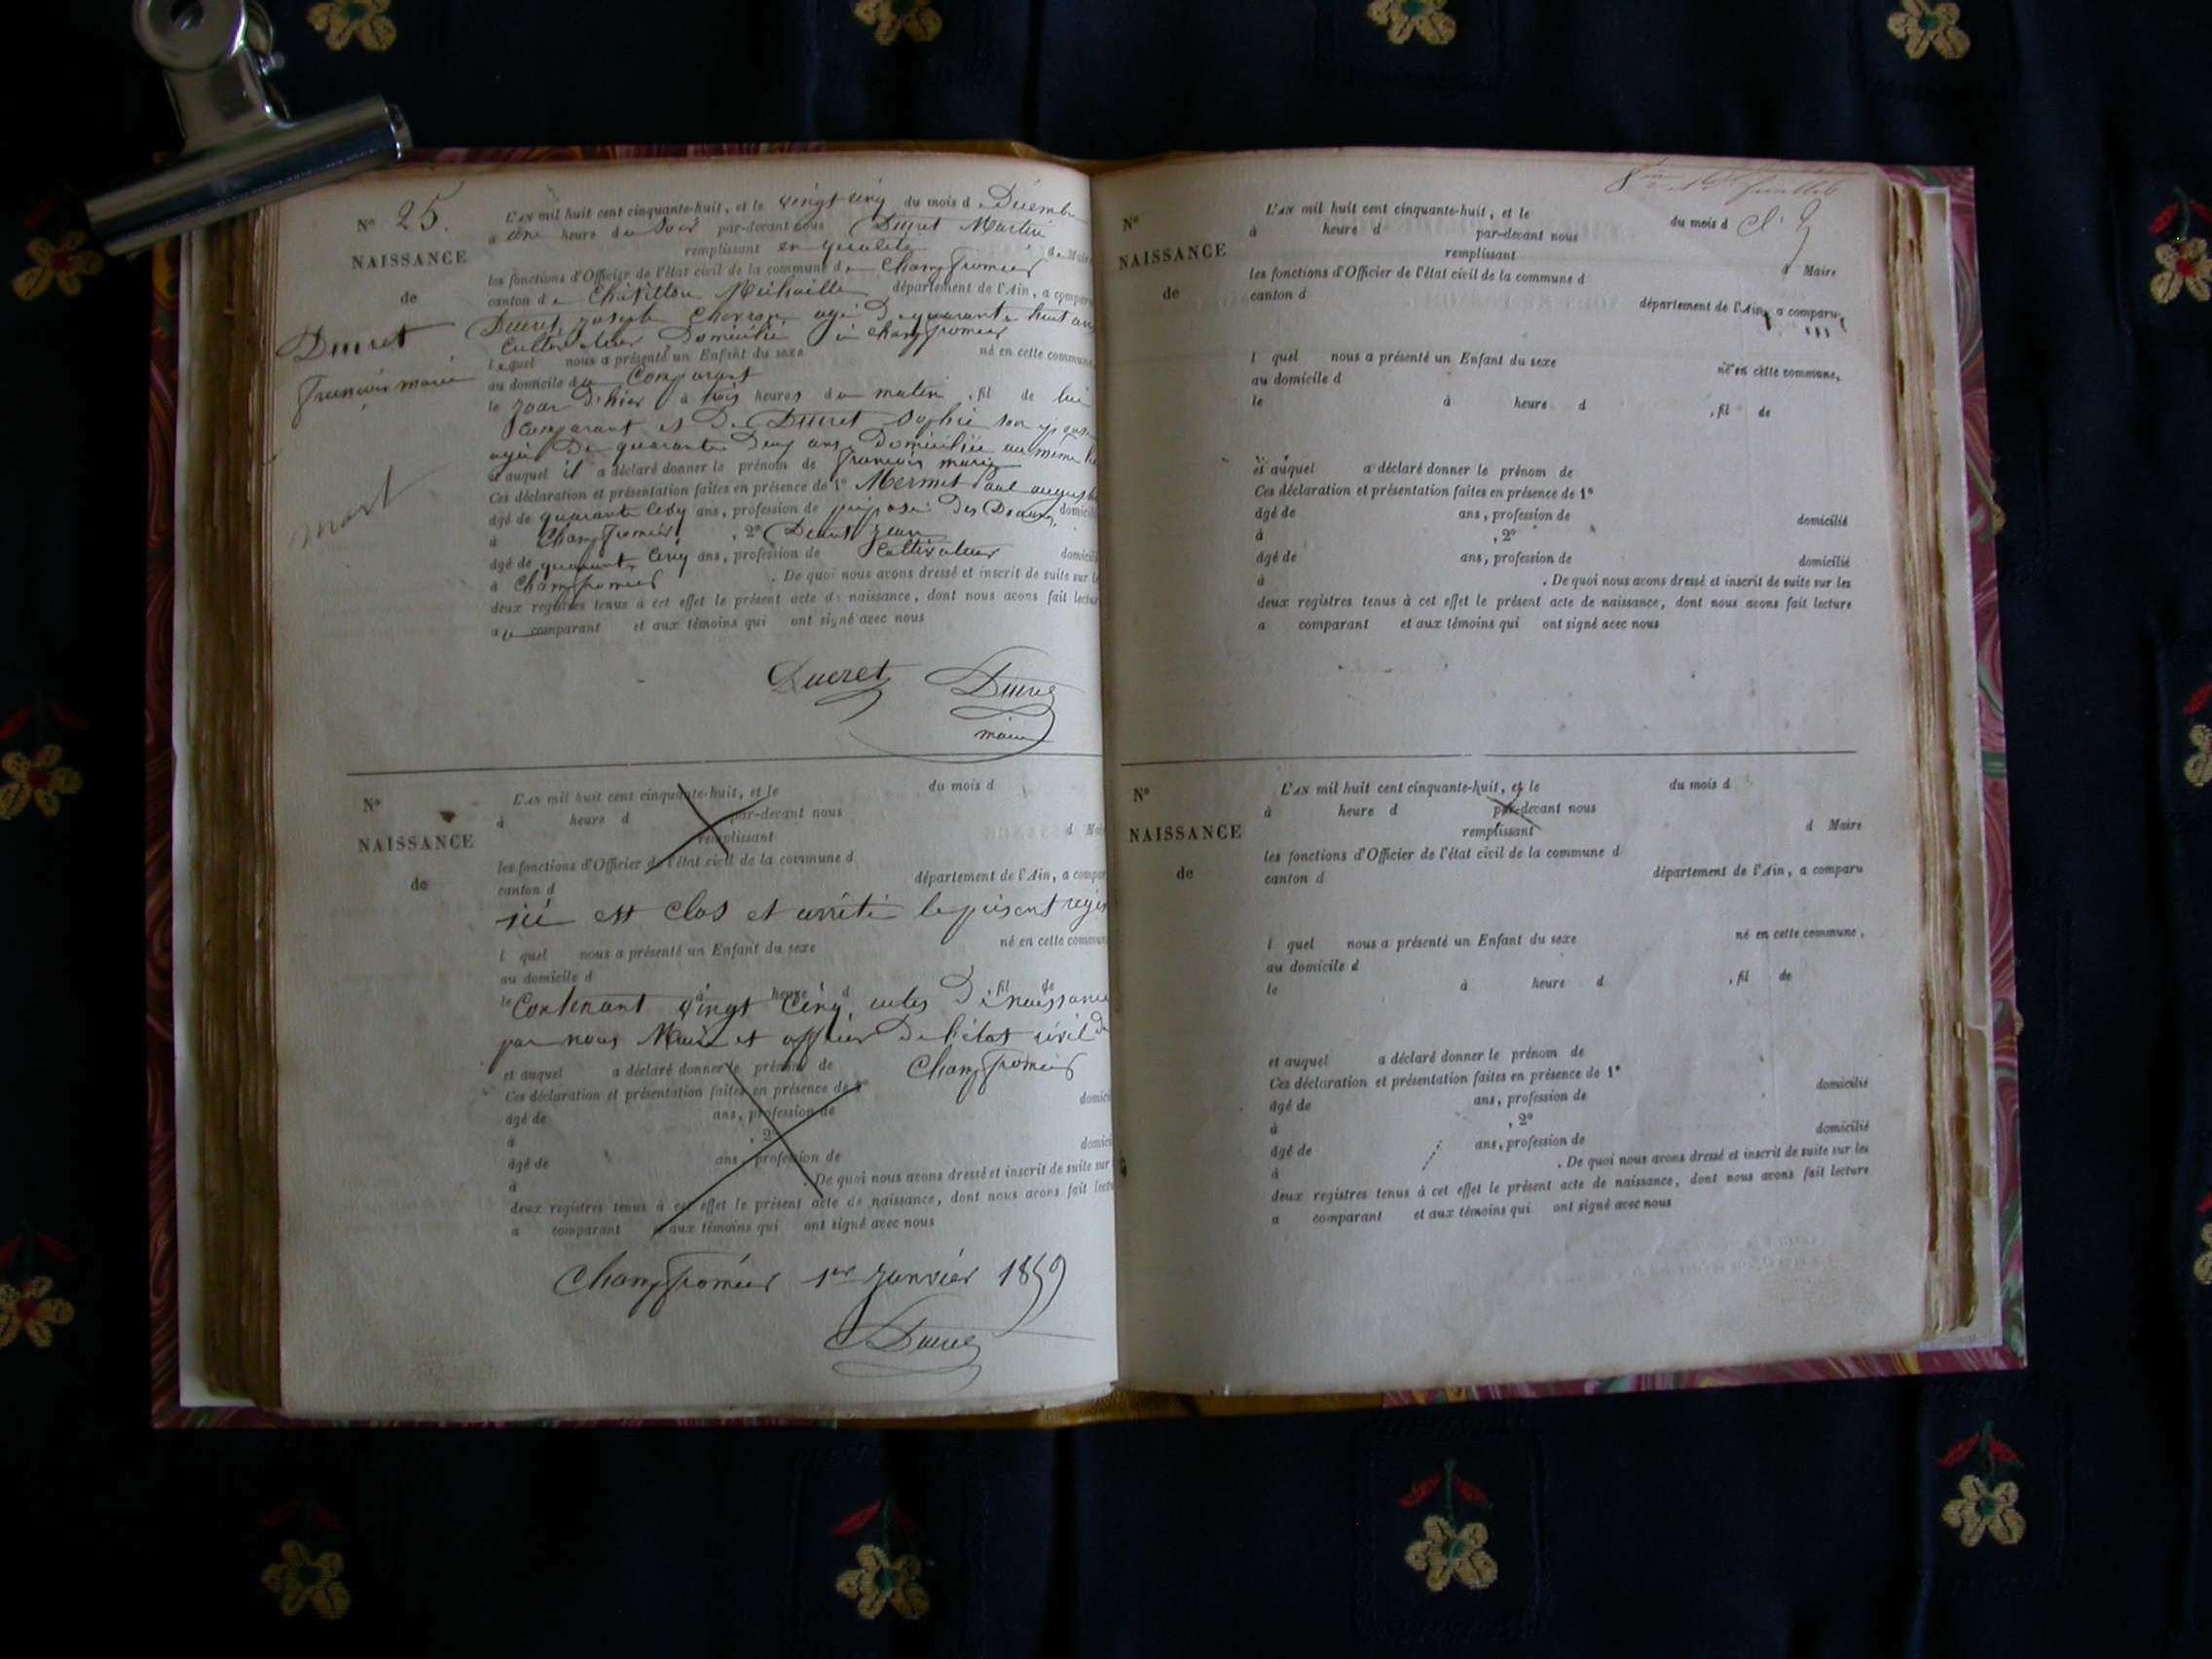 N° 25.
NAISSANCE
de
Ducret
François marie
mort
L'AN mil huit cent cinquante-huit, et le vingt cinq du mois d e Décembre
à une heure du soir par-devant nous Ducret Martin
remplissant en qualité de Maire
les fonctions d'Officier de l'état civil de la commune de Champfromier
canton de Châtillon Michaille département de l'Ain, a comparu
Ducret Joseph Chevron agé de quarante huit ans
Cultivateur Domicilié à Champfromier
lequel nous a présenté un Enfant du sexe né en cette commune
au domicile du Comparant
le jour d'hier à trois heures du matin , fil de lui
Comparant et De Ducret Sophie son épouse
agée De quarante Deux ans Domiciliée au même lieu
et auquel il a déclaré donner le prénom de François marie
Ces déclaration et présentation faites en présence de 1° Mermet Paul auguste
âgé de quarante cinq ans, profession de préposé des Douanes, domicilié
à Champfromier , 2° Ducret Jean
âgé de quarante cinq ans, profession de Cultivateur domicilié
à Champfromier . De quoi nous avons dressé et inscrit de suite sur les
deux registres tenus à cet effet le présent acte de naissance, dont nous avons fait lecture
au comparant et aux témoins qui ont signé avec nous
Ducret Ducret
maire
N°
NAISSANCE
de
L'AN mil huit cent cinquante-huit, et le du mois d
à heure d par-devant nous
remplissant d Maire
les fonctions d'Officier de l'état civil de la commune d
canton d département de l'Ain, a comparu
ici est clos et arrêté le présent regis
l quel nous a présenté un Enfant du sexe né en cette commune
au domicile d
le à heure d fil de
Contenant vingt cinq actes De naissance
par nous Maire et officier De l'état civil de
et auquel a déclaré donner le prénom de Champfromier
Ces déclaration et présentation faites en présence de 1°
âgé de ans, profession de domicilié
à , 2°
âgé de ans, profession de domicilié
à . De quoi nous avons dressé et inscrit de suite sur
deux registres tenus à cet effet le présent acte de naissance, dont nous avons fait lecture
a comparant et aux témoins qui ont signé avec nous
Champfromier 1er Janvier 1859
Ducret
feuillet
N°
NAISSANCE
de
L'AN mil huit cent cinquante-huit, et le du mois d
à heure d par-devant nous
remplissant d Maire
les fonctions d'Officier de l'état civil de la commune d
canton d département de l'Ain, a comparu
l quel nous a présenté un Enfant du sexe né en cette commune,
au domicile d
le à heure d , fil de
et auquel a déclaré donner le prénom de
Ces déclaration et présentation faites en présence de 1°
âgé de ans, profession de domicilié
à , 2°
âgé de ans, profession de domicilié
à . De quoi nous avons dressé et inscrit de suite sur les
deux registres tenus à cet effet le présent acte de naissance, dont nous avons fait lecture
a comparant et aux témoins qui ont signé avec nous
N°
NAISSANCE
de
L'AN mil huit cent cinquante-huit, et le du mois d
à heure d par-devant nous
remplissant d Maire
les fonctions d'Officier de l'état civil de la commune d
canton d département de l'Ain, a comparu
l quel nous a présenté un Enfant du sexe né en cette commune,
au domicile d
le à heure d , fil de
et auquel a déclaré donner le prénom de
Ces déclaration et présentation faites en présence de 1°
âgé de ans, profession de domicilié
à , 2°
âgé de ans, profession de domicilié
à . De quoi nous avons dressé et inscrit de suite sur les
deux registres tenus à cet effet le présent acte de naissance, dont nous avons fait lecture
a comparant et aux témoins qui ont signé avec nous